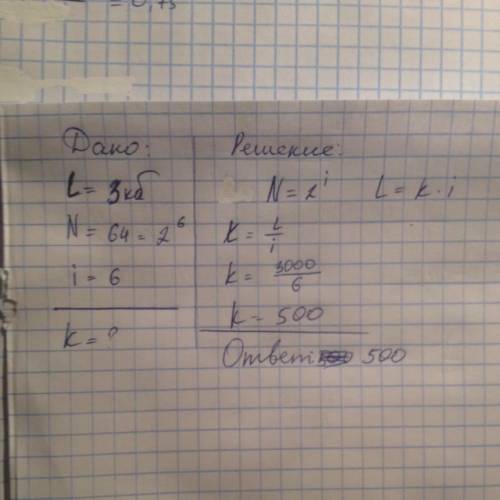 = 0,75
Дано:
L = 3кб
N = 64 = 2^6
i = 6
k = ?
Решение:
N = 2^i L = k · i
K = L/i
k = 3000/6
k = 500
Ответ 500